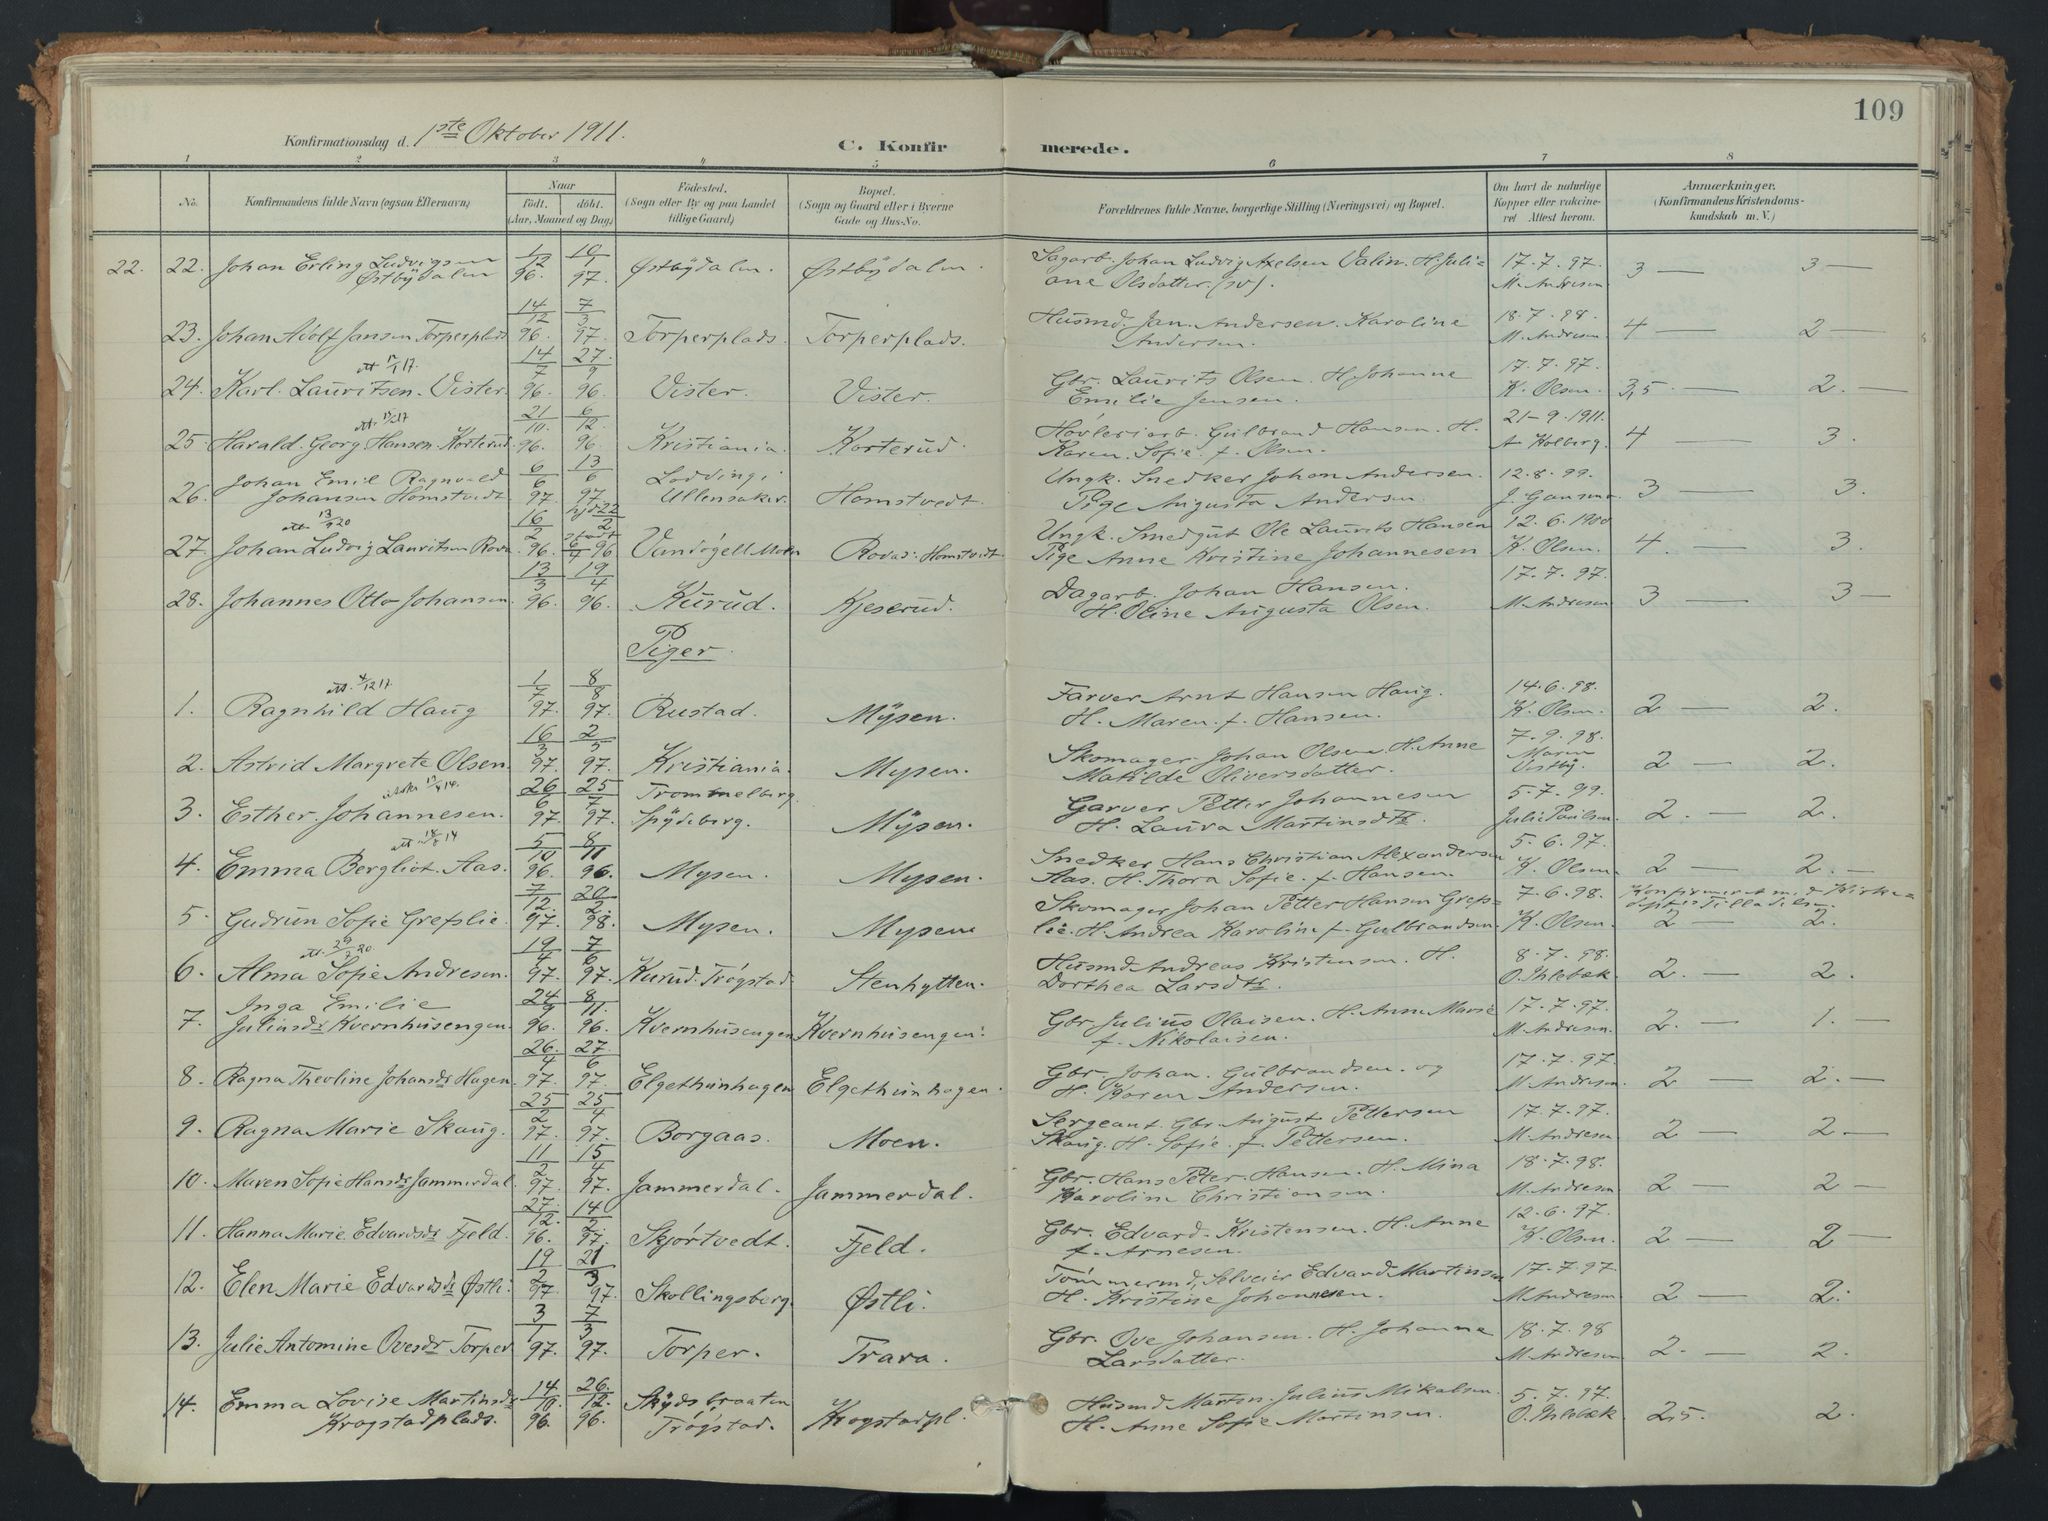 109
Konfirmationsdag d. 1ste Oktober 1911.
C. Konfirmerede.
1 2 3 4 5 6 7 8
No. Konfirmandens fulde Navn (ogsaa Efternavn) Naar født. døbt. (Aar, Maaned og Dag) Fødested. (Sogn eller By og paa Landet tillige Gaard) Bopæl. (Sogn og Gaard eller i Byerne Gade og Hus-No. Forældrenes fulde Navne, borgerlige Stilling (Næringsvei) og Bopæl. Om havt de naturlige Kopper eller vakcineret Attest herom. Anmærkninger. (Konfirmandens Kristendomskundskab m. V.)
22. 22. Johan Erling Ludvigsen Østbydalen 1/12 96. 10/1 97. Østbydalen. Østbydalen. Sagarb. Johan Ludvig Axelsen Valin. H. Juliane Olsdatter. (sv). 17.7.97. M. Andresen 3 — 3 —
23. Johan Adolf Jansen Torperplads 14/12 96. 7/3 97. Torperplads. Torperplads. Husmd. Jan. Andersen. Karoline Andersen. 18.7.98. M. Andresen 4 — 2 —
24. Karl. Lauritsen. Vister. 14/7 96. 27/9 96. Vister. Vister. Gbr. Laurits Olsen. H. Johanne Emilie Jensen. 17.7.97. K. Olsen. 3,5 — 2. —
25. Harald. Georg Hansen. Korterud. 21/10. 96. 6/12. 96. Kristiania. Korterud. Høvleriarb. Gulbrand Hansen. H. Karen. Sofie. f. Olsen. 21-9.1911. A Kolberg. 4 — 3.
26. Johan Emil Ragnvald Johansen Homstvedt. 6/6 97. 13/6 97. Ullensaker. Homstvedt. Ungk. Snedker Johan Andersen. Pige Augusta Andersen. 12.8.99. 3 — 3.
27. att 13/9 20 Johan Ludvig Lauritsen Rova 16/2 96. hjd 22/2 stadf. 6/4 96 Moen Rovas: Homstvedt. Ungk. Smedgut Ole Laurits Hansen Pige Anne Kristine Johannesen 12.6.1900 K. Olsen. 4. — 3.
28. Johannes Otto Johansen. 13/3 96. 19/4 96. Kurud. Kjeserud. Dagarb. Johan Hansen. H. Oline Augusta Olsen. 17.7.97. M. Andresen 3 — 3 —
Piger.
1. att. 4/12 17. Ragnhild Haug 1/7 97. 8/8 97. Rustad. Mysen. Farver Arnt Hansen Haug. H. Maren. f. Hansen. 14.6.98. K. Olsen. 2 — 2.
2. Astrid Margrete Olsen. 16/3 97. 2/5 97. Kristiania. Mysen. Skomager. Johan Olsen. H. Anne Matilde Oliversdatter. 7.9.98. Maren Vestby. 2 — 2.
3. Esther. Johannesen. 26/6 97. 25/7 97. Trommelberg. Spydeberg. Mysen. Garver Petter Johannesen H. Laura Martinsdtr. 5.7.99. Julie Paulsen. 2. — 2.
4. Emma Bergliot. Aas. 5/10 96. 8/11 96. Mysen. Mysen. Snedker Hans Christian Alexandersen Aas. H. Thora Sofie. f. Hansen. 5.6.97. K. Olsen 2 — 2. —
5. Gudrun Sofie Grefslie. 7/12. 97. 20/2. 98. Mysen. Mysen Skomager Johan Petter Hansen Grefslie. H. Andrea Karoline f. Gulbrandsen 7.6.98. K. Olsen. Konfirmert med Kirkedepts Tilladelse. 2 — 2.
6. att. 29/7 20. Alma Sofie Andresen. 19/4 97. 7/6 97. Kurud. Trøgstad Stenhytten. Husmd Andreas Kristensen. H. Dorthea Larsdtr. 8.7.98. O. Ihlebæk 2. — 2.
7. Inga Emilie Juliusdr Kvernhusengen. 24/9 96. 8/11. 96. Kvernhusengen Kvernhusengen. Gbr Julius Olaisen. H. Anne Marie f. Nikolaisen. 17.7.97. M. Andresen. 2. — 1. —
8. Ragna Theoline Johansdr Hagen. 26./4 97. 27./6 97. Elgethunhagen Elgethunhagen. Gbr. Johan. Gulbrandsen. og H. Karen Andersen. 17.7.97. M. Andresen. 2 — 2. —
9. Ragna Marie Skaug. 25/2 97. 25/4 97. Borgaas. Moen. Sergeant. Gbr. August Pettersen Skaug. H. Sofie. f. Pettersen. 17.7.97. M. Andresen 2 — 2 —
10. Maren Sofie Hansdr Jammerdal. 11/2 97. 15/4 97. Jammerdal. Jammerdal. Gbr. Hans Peter. Hansen. H. Mina Karoline Christiansen. 18.7.98. M. Andresen 2 — 2 —
11. Hanna Marie Edvardsdr Fjeld. 27/12. 96. 14/2 97. Skjørtvedt. Fjeld. Gbr. Edvard. Kristensen. H. Anne f. Arnesen. 12.6.97. K. Olsen. 2 — 2 —
12. Elen Marie Edvardsdr Østli. 19/2 97. 21/3 97. Skollingsberg. Østli. Tømmermd, Selveier Edvard Martinsen H. Kristine Johannesen. 17.7.97. M. Andresen 2 — 2.
13. Julie Antomine Ovesdr Torper 3/1 97. 7/3 97. Torper. Trara. Gbr. Ove Johansen. H. Johanne Larsdatter. 18.7.98 M. Andresen 2. — 2.
14. Emma Lovise Martinsdr Krogstadplads. 14/10. 96. 26./12. 96. Trøgstad. Krogstadpl. Husmd Martin. Julius Mikalsen. H. Anne Sofie Martinsen. 5.7.97. O. Ihlebæk. 2,5. — 2.